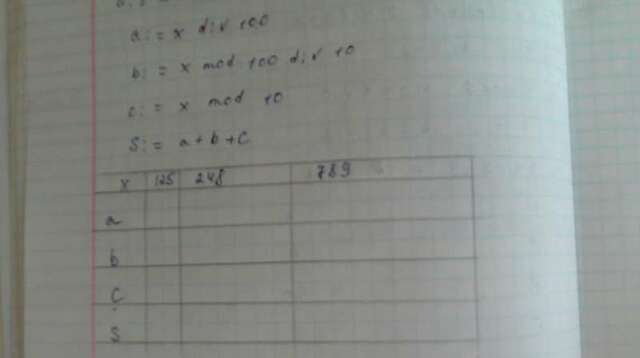 a:= x div 100
b:= x mod 100 div 10
c:= x mod 10
S:= a+b+c
x 125 248 789
a
b
c
S